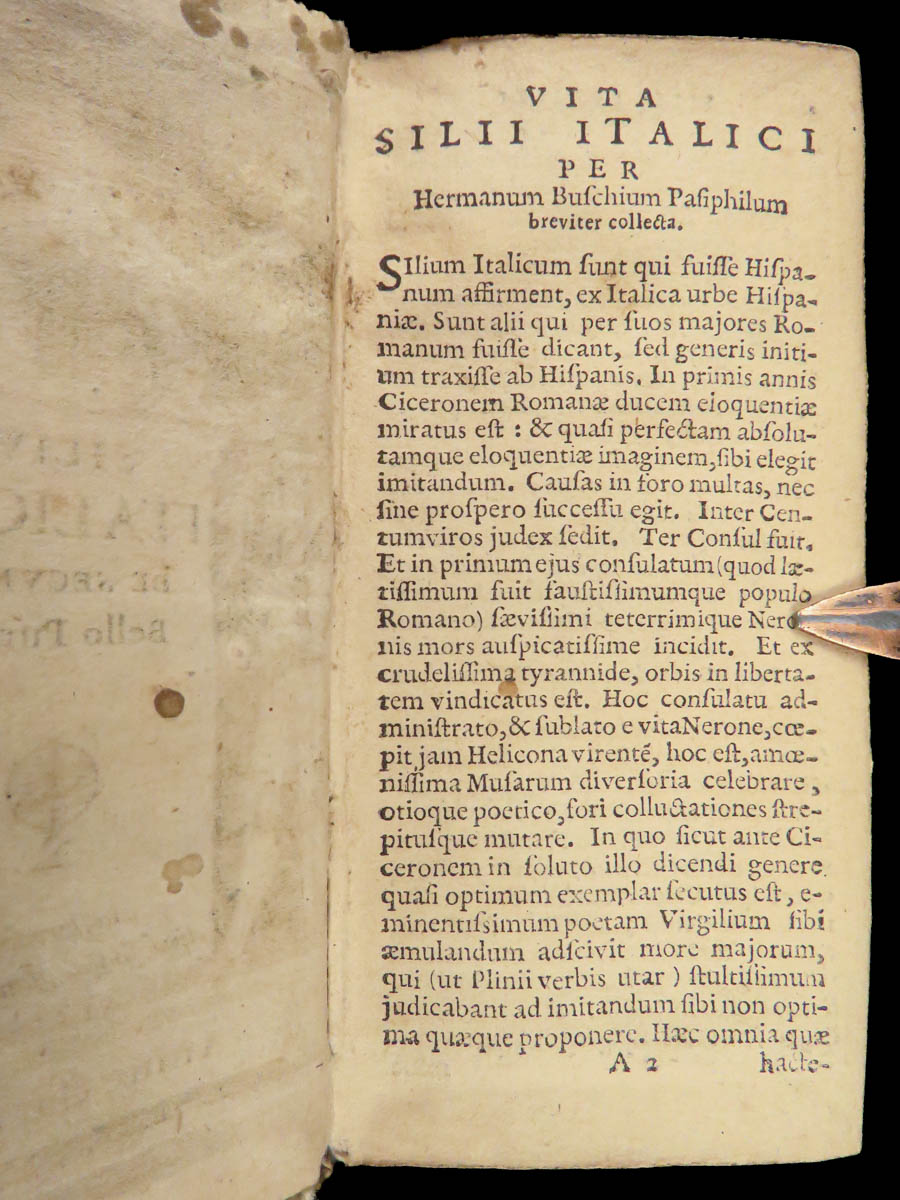 VITA
SILII ITALICI
PER
Hermanum Buſchium Paſiphilum
breviter collecta.
SIlium Italicum ſunt qui fuiſſe Hiſpa-
num affirment, ex Italica urbe Hiſpa-
niæ. Sunt alii qui per ſuos majores Ro-
manum fuiſſe dicant, ſed generis initi-
um traxiſſe ab Hiſpanis. In primis annis
Ciceronem Romanæ ducem eloquentiæ
miratus eſt : & quaſi perfectam abſolu-
tamque eloquentiæ imaginem, ſibi elegit
imitandum. Cauſas in foro multas, nec
ſine proſpero ſucceſſu egit. Inter Cen-
tumviros judex ſedit. Ter Conſul fuit.
Et in primum ejus conſulatum (quod læ-
tiſſimum fuit fauſtiſſimumque populo
Romano) ſæviſſimi teterrimique Nero-
nis mors auſpicatiſſime incidit. Et ex
crudeliſſima tyrannide, orbis in liberta-
tem vindicatus eſt. Hoc conſulatu ad-
miniſtrato, & ſublato e vita Nerone, cœ-
pit jam Helicona virenté, hoc eſt, amœ-
niſſima Muſarum diverſoria celebrare,
otioque poetico, fori colluctationes ſtre-
pituſque mutare. In quo ſicut ante Ci-
ceronem in ſoluto illo dicendi genere
quaſi optimum exemplar ſecutus eſt, e-
minentiſsimum poetam Virgilium ſibi
æmulandum adſcivit more majorum,
qui (ut Plinii verbis utar) ſtultiſſimum
judicabant ad imitandum ſibi non opti-
ma quæque proponere. Hæc omnia quæ
A 2 hacte-